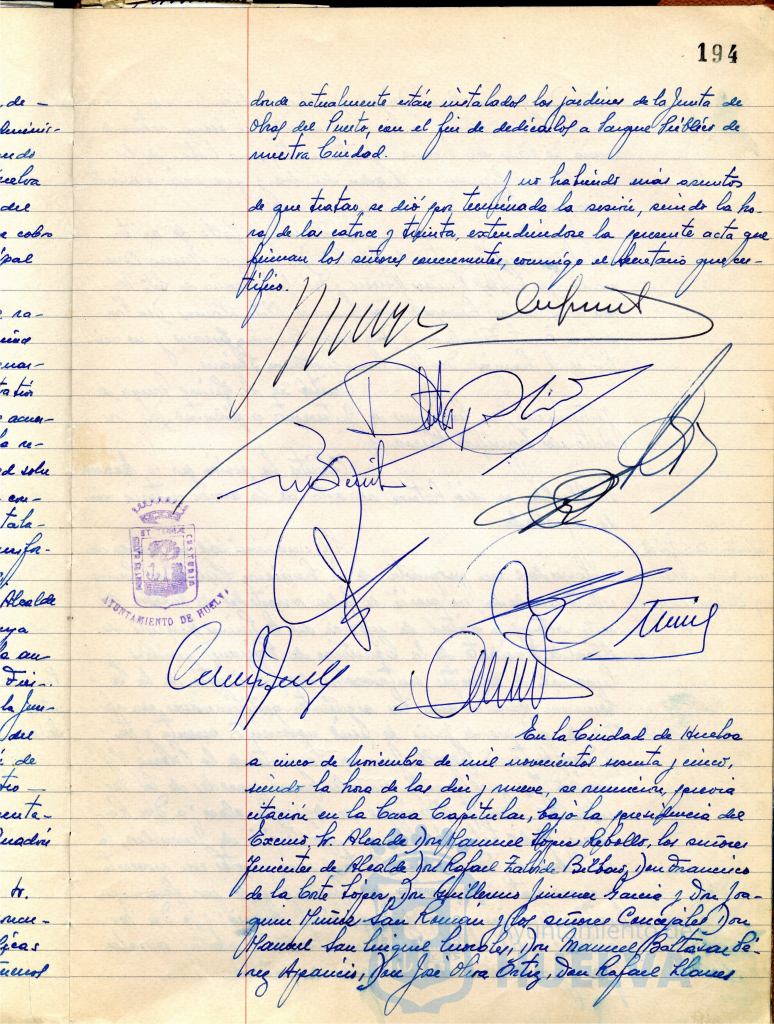 194
donde actualmente están instalados los jardines de la Junta de
Obras del Puerto, con el fin de dedicarlos a Parque Público de
nuestra Ciudad.
Y no habiendo más asuntos
de que tratar, se dió por terminada la sesión, siendo la ho-
ra de las catorce y treinta, extendiéndose la presente acta que
firman los señores concurrentes, conmigo el Secretario que cer-
tifico.
AYUNTAMIENTO DE HUELVA
En la Ciudad de Huelva
a cinco de Noviembre de mil novecientos sesenta y cinco,
siendo la hora de las diez y nueve, se reunieron, previa
citación en la Casa Capitular, bajo la presidencia del
Excmo. Sr. Alcalde Don Manuel López Rebollo, los señores
Tenientes de Alcalde Don Rafael Zalvide Bilbao, Don Francisco
de la Corte López, Don Guillermo Jimenez Garcia y Don Joa-
quin Muñiz San Román y los señores Concejales Don
Manuel San Miguel Morales, Don Manuel Baltasar Pé-
rez Aparicio, Don José Oliva Ortiz, Don Rafael Llanes